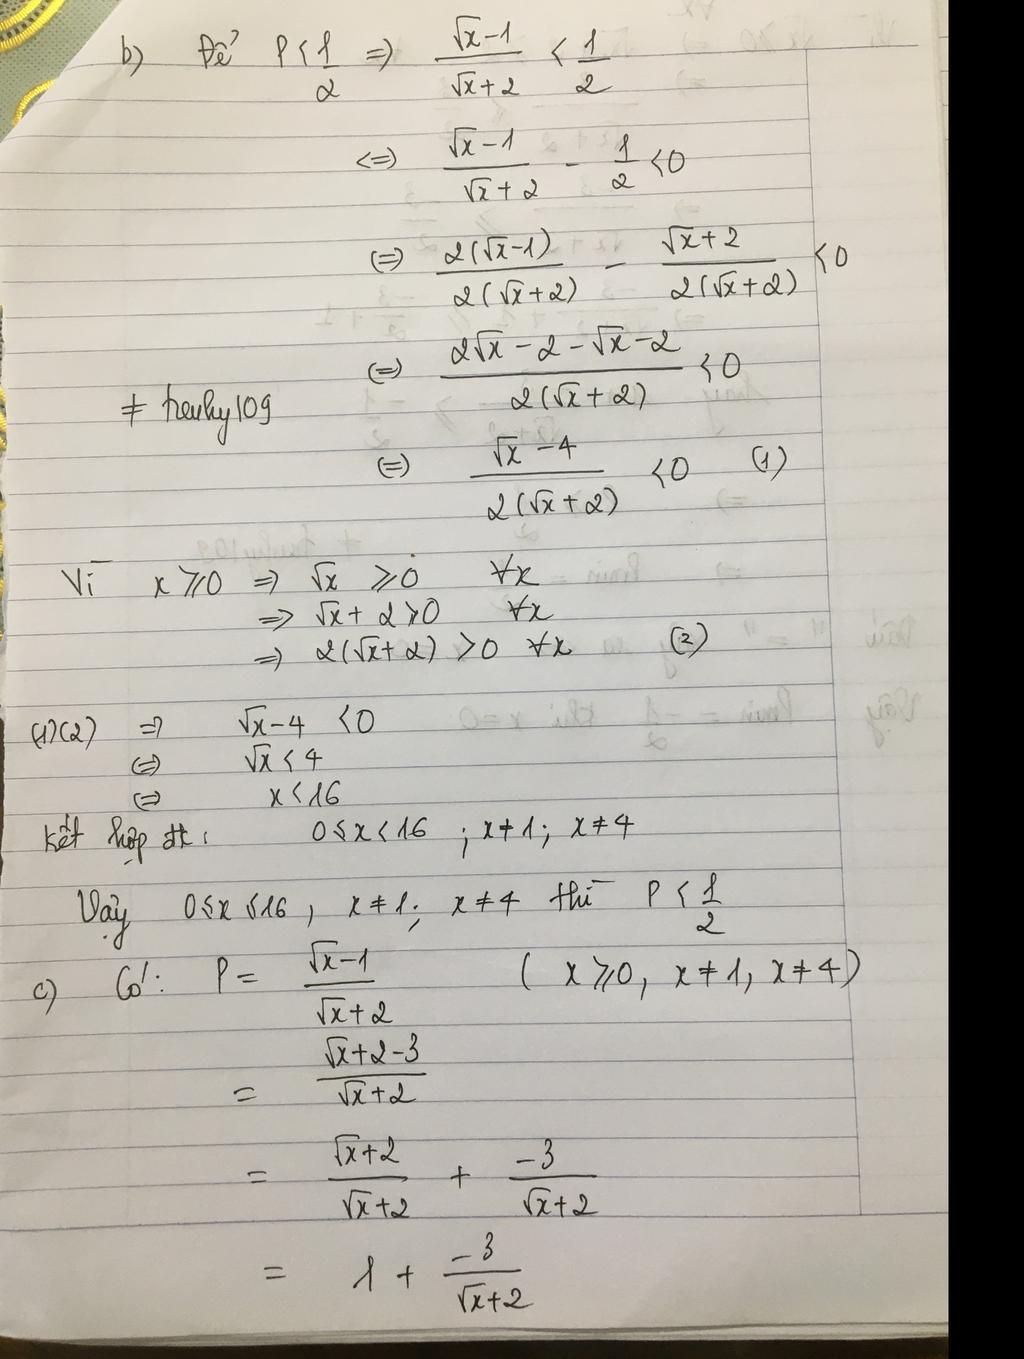 b) Để P < 1/2 => (√x - 1)/(√x + 2) < 1/2
<=> (√x - 1)/(√x + 2) - 1/2 < 0
(=) 2(√x-1)/2(√x+2) - (√x+2)/2(√x+2) < 0
(=) (2√x - 2 - √x - 2)/2(√x+2) < 0
(=) (√x - 4)/2(√x+2) < 0 (1)
Vì x ⩾ 0 => √x ⩾ 0 ∀x
=> √x + 2 > 0 ∀x
=> 2(√x+2) > 0 ∀x (2)
(1)(2) => √x - 4 < 0
(=) √x < 4
(=) x < 16
Kết hợp đk: 0 ≤ x < 16 ; x ≠ 1; x ≠ 4
Vậy 0 ≤ x < 16, x ≠ 1; x ≠ 4 thì P < 1/2
c) Có: P = (√x - 1)/(√x + 2) ( x ⩾ 0, x ≠ 1, x ≠ 4)
= (√x + 2 - 3)/(√x + 2)
= (√x + 2)/(√x + 2) + -3/(√x + 2)
= 1 + -3/(√x + 2)